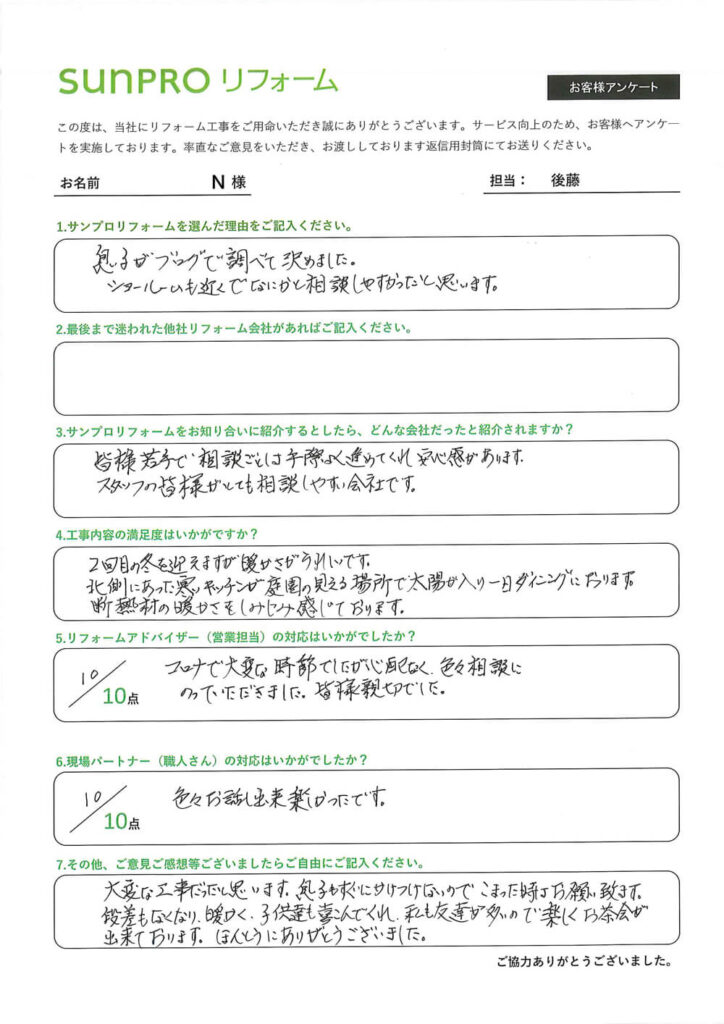 SUNPRO リフォーム
お客様アンケート
この度は、当社にリフォーム工事をご用命いただき誠にありがとうございます。サービス向上のため、お客様へアンケー
トを実施しております。率直なご意見をいただき、お渡ししております返信用封筒にてお送りください。
お名前 N 様 担当： 後藤
1.サンプロリフォームを選んだ理由をご記入ください。
息子がブログで調べて決めました。
ショールームも近くでなにかと相談しやすかったと思います。
2.最後まで迷われた他社リフォーム会社があればご記入ください。
3.サンプロリフォームをお知り合いに紹介するとしたら、どんな会社だったと紹介されますか？
皆様若手で相談ごとは手際よく進めてくれ安心感があります.
スタッフの皆様がとても相談しやすい会社です。
4.工事内容の満足度はいかがですか？
2回目の冬を迎えますが暖かさがうれしいです。
北側にあった寒いキッチンが庭園の見える場所で太陽が入り一日ダイニングにおります。
断熱材の暖かさをしみじみ感じております。
5.リフォームアドバイザー（営業担当）の対応はいかがでしたか？
10/10点
コロナで大変な時節でしたが心配なく、色々相談に
のっていただきました。皆様親切でした。
6.現場パートナー（職人さん）の対応はいかがでしたか？
10/10点
色々お話し出来楽しかったです。
7.その他、ご意見ご感想等ございましたらご自由にご記入ください。
大変な工事だったと思います。息子もすぐにかけつけないので こまった時はお願い致ます。
段差もなくなり、暖かく、子供達も喜こんでくれ、私も友達が多いので楽しくお茶会が
出来ております。ほんとうにありがとうございました。
ご協力ありがとうございました。